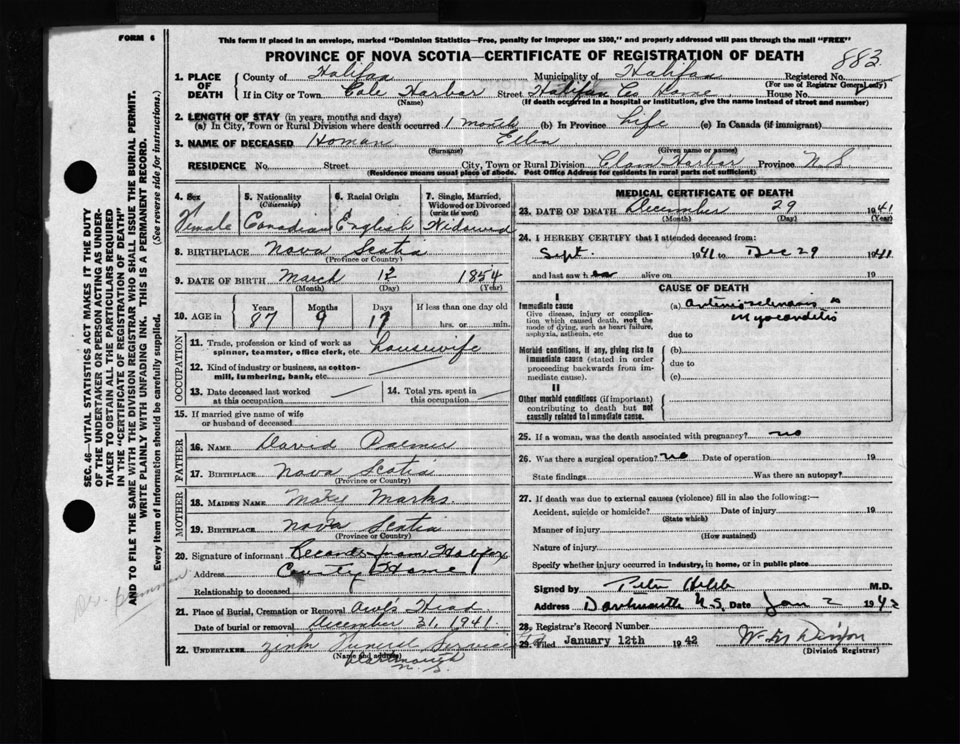 FORM 6
This form if placed in an envelope, marked "Dominion Statistics—Free, penalty for improper use $300," and properly addressed will pass through the mail "FREE"
PROVINCE OF NOVA SCOTIA—CERTIFICATE OF REGISTRATION OF DEATH
883
1. PLACE OF DEATH
County of Halifax Municipality of Halifax Registered No.
(For use of Registrar General only)
If in City or Town Cole Harbor Street Halifax Co Home House No.
(Name) (If death occurred in a hospital or institution, give the name instead of street and number)
2. LENGTH OF STAY (in years, months and days)
(a) In City, Town or Rural Division where death occurred 1 month (b) In Province Life (c) In Canada (if immigrant)
3. NAME OF DECEASED Homan Ellen
(Surname) (Given name or names)
RESIDENCE No. Street City, Town or Rural Division Clam Harbor Province N S
(Residence means usual place of abode. Post Office Address for residents in rural parts not sufficient)
4. Sex Female
5. Nationality (Citizenship) Canadian
6. Racial Origin English
7. Single, Married, Widowed or Divorced (write the word) Widowed
8. BIRTHPLACE Nova Scotia
(Province or Country)
9. DATE OF BIRTH March 12 1854
(Month) (Day) (Year)
10. AGE in Years Months Days If less than one day old
87 9 17 hrs. or min.
OCCUPATION
11. Trade, profession or kind of work as spinner, teamster, office clerk, etc. housewife
12. Kind of industry or business, as cotton-mill, lumbering, bank, etc.
13. Date deceased last worked at this occupation
14. Total yrs. spent in this occupation
15. If married give name of wife or husband of deceased
FATHER
16. NAME David Palmer
17. BIRTHPLACE Nova Scotia
(Province or Country)
MOTHER
18. MAIDEN NAME Mary Marks
19. BIRTHPLACE Nova Scotia
(Province or Country)
20. Signature of informant Records from Halifax
Address County Home
Relationship to deceased
21. Place of Burial, Cremation or Removal Owl's Head
Date of burial or removal December 31, 1941.
22. UNDERTAKER Zink Funeral
(Name and address)
Dartmouth
N. S.
MEDICAL CERTIFICATE OF DEATH
23. DATE OF DEATH December 29 1941
(Month) (Day) (Year)
24. I HEREBY CERTIFY that I attended deceased from:
Sept. 1941 to Dec 29 1941
and last saw h er alive on 19
CAUSE OF DEATH
I
Immediate cause
Give disease, injury or complication which caused death, not the mode of dying, such as heart failure, asphyxia, asthenia, etc
(a) Arteriosclerosis &
Myocarditis
due to
Morbid conditions, if any, giving rise to immediate cause (stated in order proceeding backwards from immediate cause).
(b)
due to
(c)
II
Other morbid conditions (if important) contributing to death but not causally related to immediate cause.
25. If a woman, was the death associated with pregnancy? no
26. Was there a surgical operation? no Date of operation 19
State findings Was there an autopsy?
27. If death was due to external causes (violence) fill in also the following:—
Accident, suicide or homicide? Date of injury 19
(State which)
Manner of injury
(How sustained)
Nature of injury
Specify whether injury occurred in industry, in home, or in public place
Signed by M.D.
Address Dartmouth N.S. Date Jan 2 1942
28. Registrar's Record Number
29. Filed January 12th 1942
(Division Registrar)
SEC. 46—VITAL STATISTICS ACT MAKES IT THE DUTY
OF THE UNDERTAKER OR PERSON ACTING AS UNDERTAKER TO OBTAIN ALL THE PARTICULARS REQUIRED
IN THE "CERTIFICATE OF REGISTRATION OF DEATH"
AND TO FILE THE SAME WITH THE DIVISION REGISTRAR WHO SHALL ISSUE THE BURIAL PERMIT.
WRITE PLAINLY WITH UNFADING INK. THIS IS A PERMANENT RECORD.
Every item of Information should be carefully supplied. (See reverse side for instructions.)